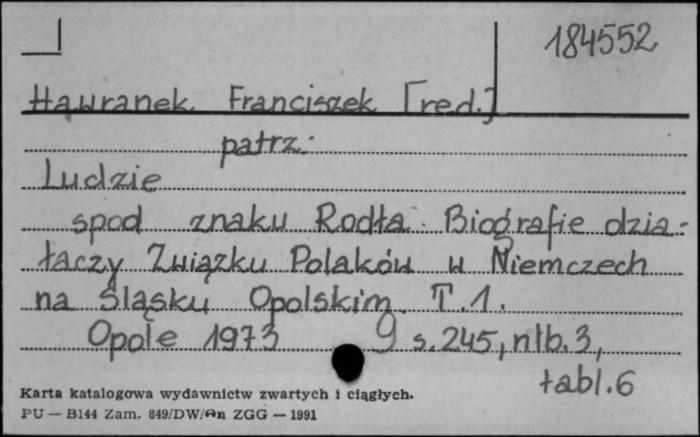 184552
Hawranek Franciszek [red.]
patrz:
Ludzie
spod znaku Rodła. Biografie dzia-
łaczy Związku Polaków w Niemczech
na Śląsku Opolskim. T.1.
Opole 1973 s.245, nlb.3,
tabl.6
Karta katalogowa wydawnictw zwartych i ciągłych.
PU — B144 Zam. 849/DW/An ZGG — 1991